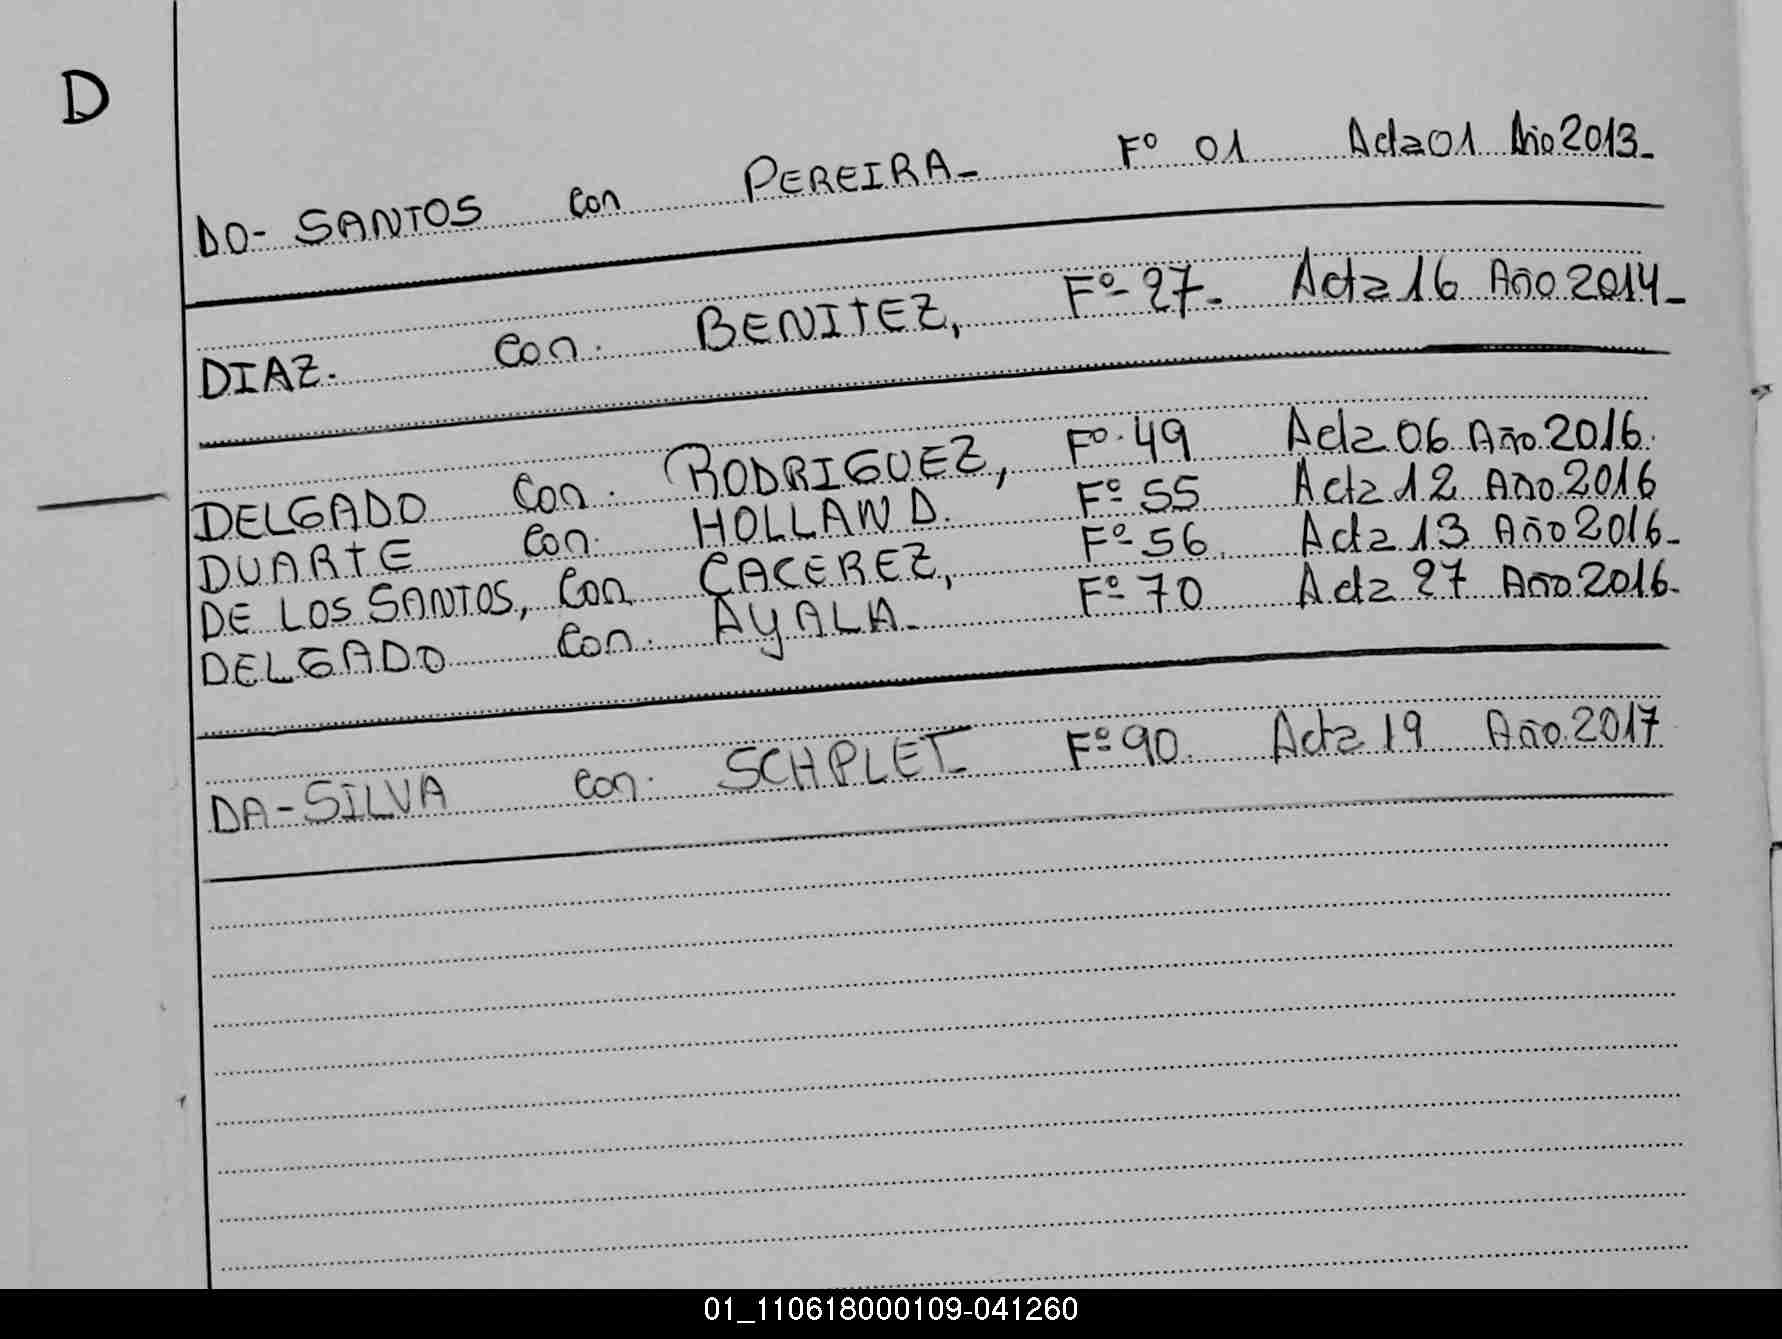 D
DO-SANTOS con PEREIRA- Fº 01 Acta 01 Año 2013-
DIAZ. con. BENITEZ, Fº-27- Acta 16 Año 2014-
DELGADO con. RODRIGUEZ, Fº.49 Acta 06 Año 2016.
DUARTE con. HOLLAND. Fº 55 Acta 12 Año 2016
DE LOS SANTOS, con CACEREZ, Fº-56. Acta 13 Año 2016-
DELGADO con. AYALA- Fº 70 Acta 27 Año 2016-
DA-SILVA con. SCHPLET- Fº 90. Acta 19 Año 2017
01_110618000109-041260